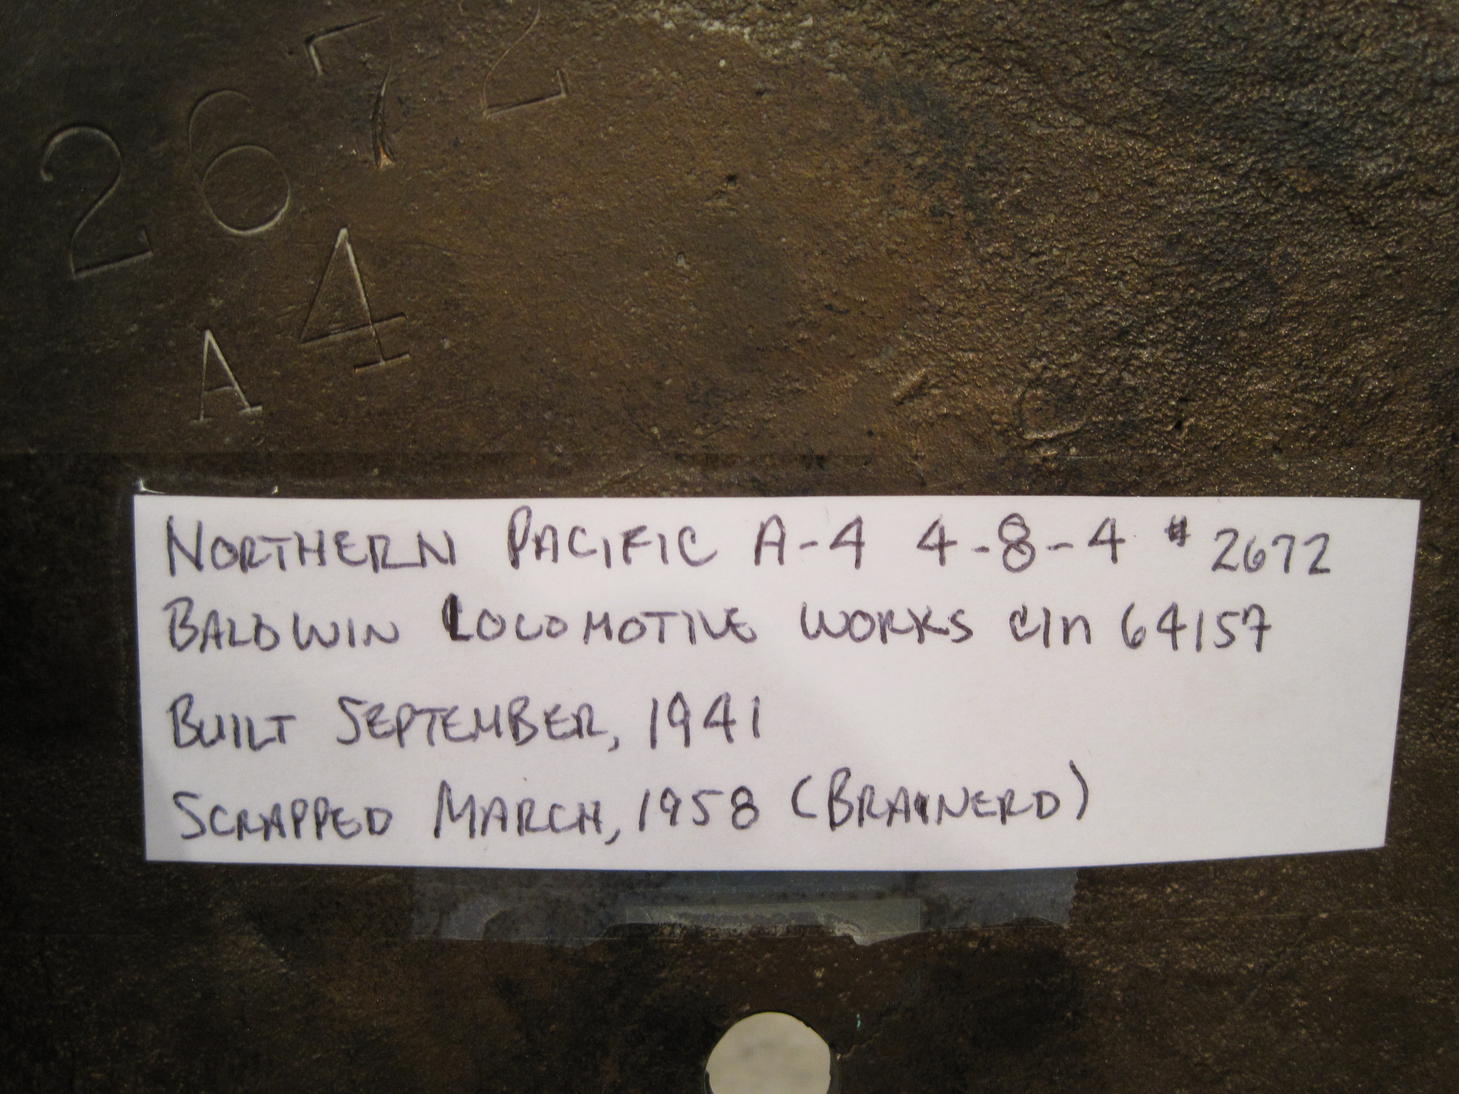 2672
A4
NORTHERN PACIFIC A-4 4-8-4 #2672
BALDWIN LOCOMOTIVE WORKS c/n 64157
BUILT SEPTEMBER, 1941
SCRAPPED MARCH, 1958 (BRAINERD)